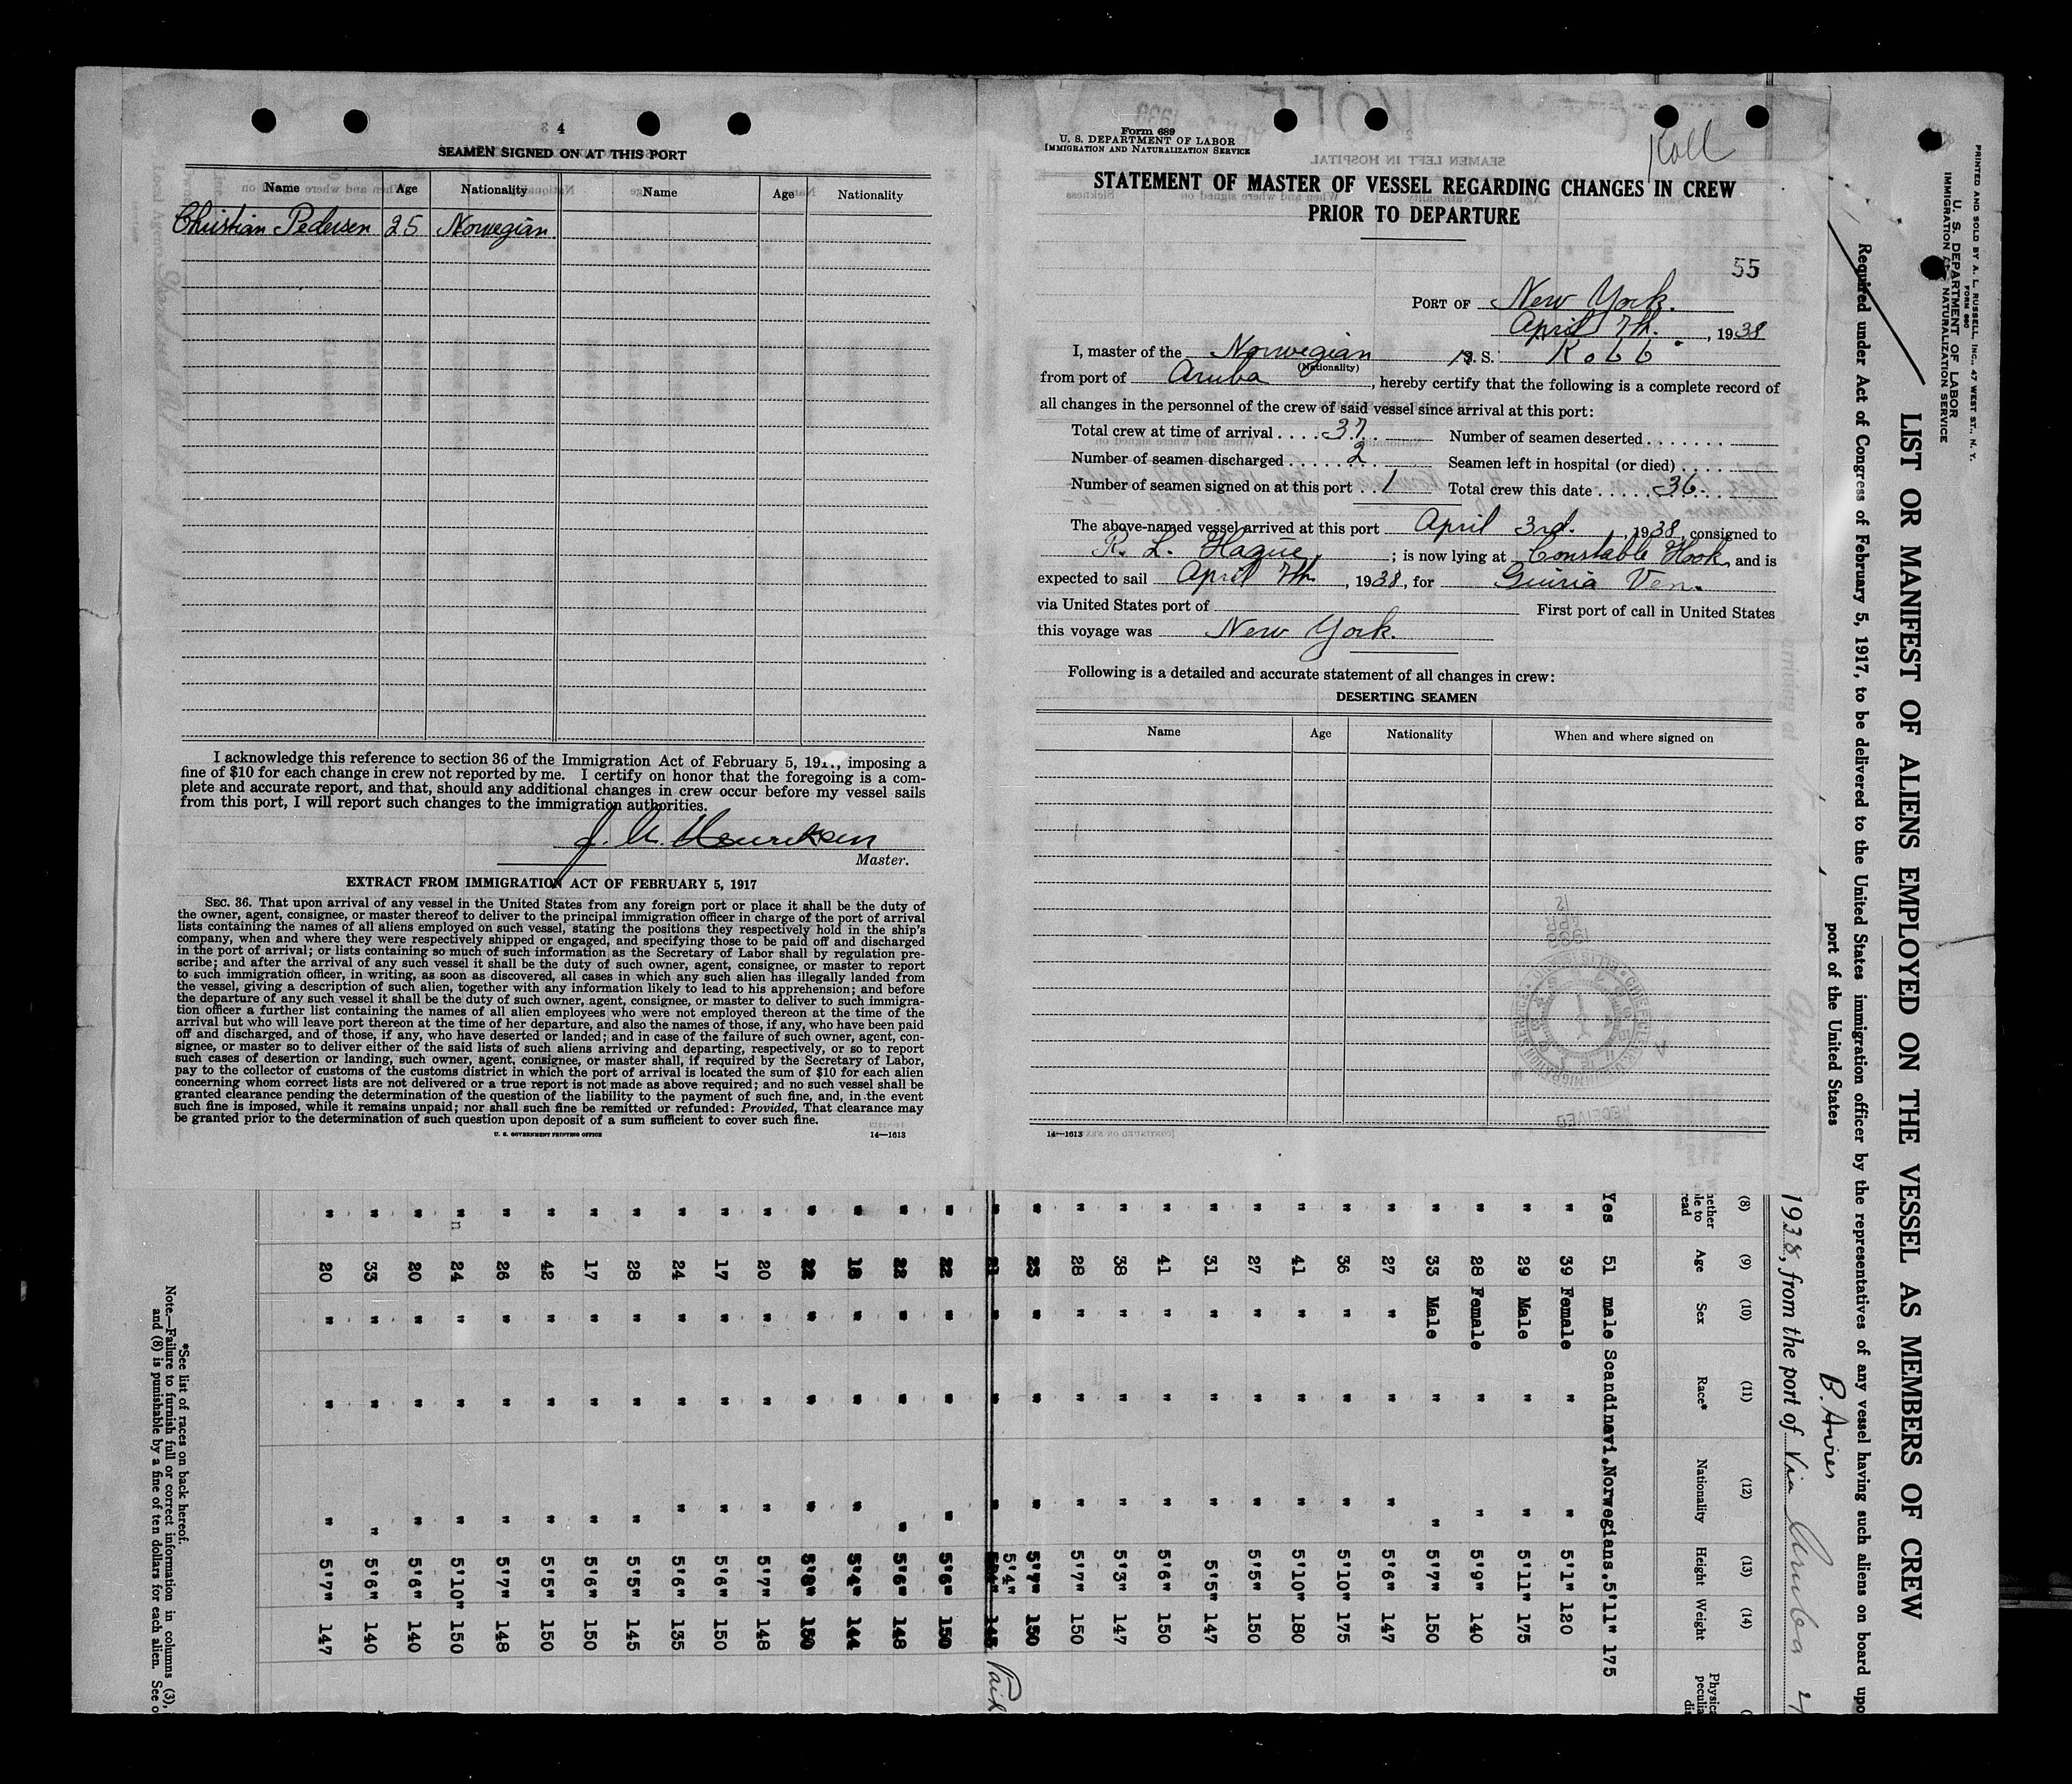 4
SEAMEN SIGNED ON AT THIS PORT
Name Age Nationality Name Age Nationality
Christian Pedersen 25 Norwegian
I acknowledge this reference to section 36 of the Immigration Act of February 5, 191 , imposing a
fine of $10 for each change in crew not reported by me. I certify on honor that the foregoing is a com-
plete and accurate report, and that, should any additional changes in crew occur before my vessel sails
from this port, I will report such changes to the immigration authorities.
Master.
EXTRACT FROM IMMIGRATION ACT OF FEBRUARY 5, 1917
SEC. 36. That upon arrival of any vessel in the United States from any foreign port or place it shall be the duty of
the owner, agent, consignee, or master thereof to deliver to the principal immigration officer in charge of the port of arrival
lists containing the names of all aliens employed on such vessel, stating the positions they respectively hold in the ship's
company, when and where they were respectively shipped or engaged, and specifying those to be paid off and discharged
in the port of arrival; or lists containing so much of such information as the Secretary of Labor shall by regulation pre-
scribe; and after the arrival of any such vessel it shall be the duty of such owner, agent, consignee, or master to report
to such immigration officer, in writing, as soon as discovered, all cases in which any such alien has illegally landed from
the vessel, giving a description of such alien, together with any information likely to lead to his apprehension; and before
the departure of any such vessel it shall be the duty of such owner, agent, consignee, or master to deliver to such immigra-
tion officer a further list containing the names of all alien employees who were not employed thereon at the time of the
arrival but who will leave port thereon at the time of her departure, and also the names of those, if any, who have been paid
off and discharged, and of those, if any, who have deserted or landed; and in case of the failure of such owner, agent, con-
signee, or master so to deliver either of the said lists of such aliens arriving and departing, respectively, or so to report
such cases of desertion or landing, such owner, agent, consignee, or master shall, if required by the Secretary of Labor,
pay to the collector of customs of the customs district in which the port of arrival is located the sum of $10 for each alien
concerning whom correct lists are not delivered or a true report is not made as above required; and no such vessel shall be
granted clearance pending the determination of the question of the liability to the payment of such fine, and, in the event
such fine is imposed, while it remains unpaid; nor shall such fine be remitted or refunded: Provided, That clearance may
be granted prior to the determination of such question upon deposit of a sum sufficient to cover such fine.
U. S. GOVERNMENT PRINTING OFFICE 14—1613
Form 689
U. S. DEPARTMENT OF LABOR
IMMIGRATION AND NATURALIZATION SERVICE
Koll
STATEMENT OF MASTER OF VESSEL REGARDING CHANGES IN CREW
PRIOR TO DEPARTURE
55
PORT OF New York.
April 7th., 1938
I, master of the Norwegian S. S. Koll
(Nationality)
from port of Aruba, hereby certify that the following is a complete record of
all changes in the personnel of the crew of said vessel since arrival at this port:
Total crew at time of arrival .... 37. Number of seamen deserted .......
Number of seamen discharged ...... 2 Seamen left in hospital (or died) ....
Number of seamen signed on at this port .. 1 Total crew this date ..... 36.
The above-named vessel arrived at this port April 3rd., 1938, consigned to
R. L. Hague,; is now lying at Constable Hook, and is
expected to sail April 7th, 1938, for Guiria Ven.
via United States port of First port of call in United States
this voyage was New York.
Following is a detailed and accurate statement of all changes in crew:
DESERTING SEAMEN
Name Age Nationality When and where signed on
14—1613
PRINTED AND SOLD BY A. L. RUSSELL, INC., 47 WEST ST., N. Y.
FORM 680
U. S. DEPARTMENT OF LABOR
IMMIGRATION AND NATURALIZATION SERVICE
LIST OR MANIFEST OF ALIENS EMPLOYED ON THE VESSEL AS MEMBERS OF CREW
Required under Act of Congress of February 5, 1917, to be delivered to the United States immigration officer by the representatives of any vessel having such aliens on board upo
port of the United States
B. Aires
1938, from the port of Via Aruba
(8) (9) (10) (11) (12) (13) (14)
hether
le to
read Age Sex Race* Nationality Height Weight Physica
peculia
Yes 51 male Scandinavi.Norwegians.5'11" 175
" 39 Female " " 5'1" 120
" 29 Male " " 5'11" 175
" 28 Female " " 5'9" 140
" 33 Male " " 5'7" 150
" 27 " " " 5'6" 147
" 36 " " " 5'10" 175
" 41 " " " 5'10" 180
" 27 " " " 5'5" 150
" 31 " " " 5'5" 147
" 41 " " " 5'6" 150
" 38 " " " 5'3" 147
" 28 " " " 5'7" 150
" 23 " " " 5'7" 150
" 21 " " " 5'4" 145 Paid
" 22 " " " 5'6" 150
" 22 " " " 5'6" 148
" 18 " " " 5'4" 144
" 22 " " " 5'8" 150
" 20 " " " 5'7" 148
" 17 " " " 5'6" 150
" 24 " " " 5'6" 135
" 28 " " " 5'5" 145
" 17 " " " 5'6" 150
" 42 " " " 5'5" 150
" 26 " " " 5'7" 148
" 24 " " " 5'10" 150
" 20 " " " 5'6" 140
" 33 " " " 5'6" 140
" 20 " " " 5'7" 147
*See list of races on back hereof.
Note.—Failure to furnish full or correct information in columns (3),
and (8) is punishable by a fine of ten dollars for each alien. See o